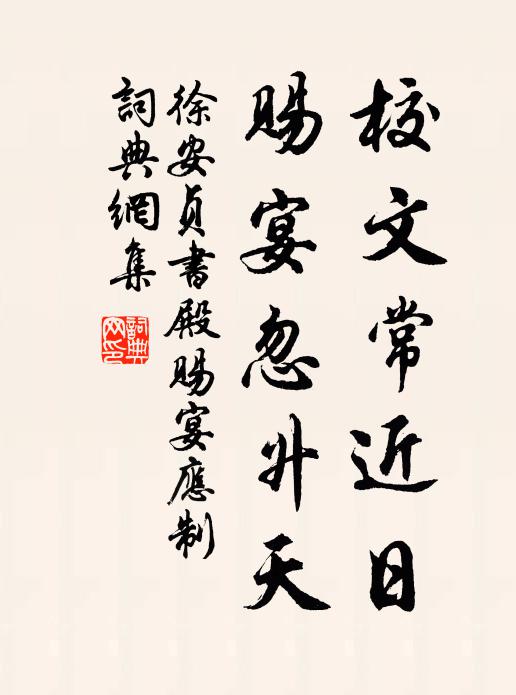 校文常近日
賜宴忽升天
徐安貞書殿賜宴應制
詞典網集
詞典
网印